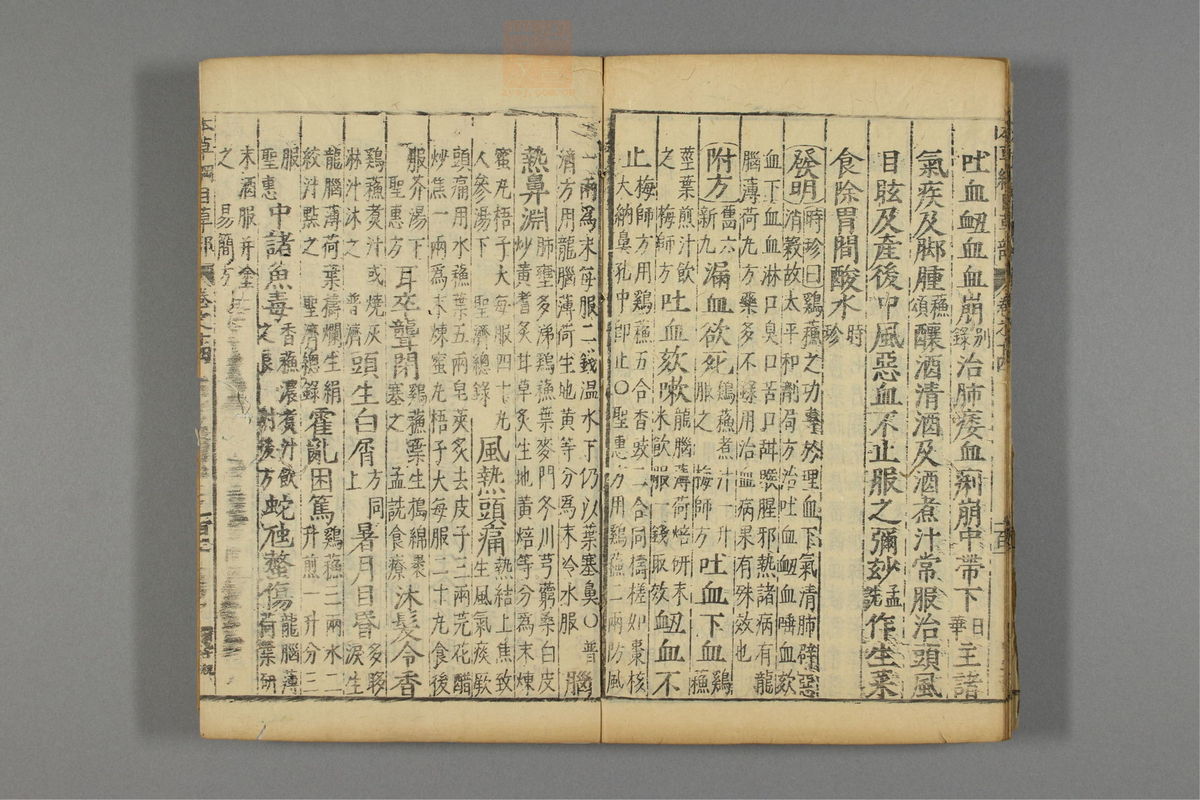 吐血衄血血崩別錄治肺痿血痢崩中帶下日華主諸
氣疾及脚腫蘓頌釀酒清酒及酒煮汁常服治頭風
目眩及產後中風惡血不止服之彌妙孟詵作生菜
食除胃間酸水時珍
發明時珍曰鷄蘓之功專於理血下氣清肺辟惡
消穀故太平和劑局方治吐血衄血唾血欬
血下血血淋口臭口苦口甜喉腥邪熱諸病有龍
腦薄荷丸方藥多不錄用治血病果有殊效也
附方舊六新九漏血欲死鷄蘓煮汁一升服之 梅師方吐血下血鷄蘓
莖葉煎汁飲之 梅師方吐血欬嗽龍腦薄荷焙研末米飲服 錢取效衄血不
止梅師方用鷄蘓五合香豉二合同擣搓如棗核
大納鼻孔中即止○聖惠方用鷄蘓二兩防風
一兩爲末每服二錢温水下仍以葉塞鼻○普
濟方用龍腦薄荷生地黄等分爲末冷水服腦
熱鼻淵肺壅多涕鷄蘓葉麥門冬川芎藭桑白皮
炒黄耆炙甘草炙生地黄焙等分為末煉
蜜丸梧子大每服四十丸人參湯下 聖濟總錄風熱頭痛熱結上焦致生風氣痰厥
頭痛用水蘓葉五兩皂莢炙去皮子三兩芫花醋
炒焦一兩爲末煉蜜丸梧子大每服二十丸食後
服荠湯下 聖惠方耳卒聾閉鷄蘓葉生搗綿裹塞之 孟詵食療沐髮令香
鷄蘓煮汁或燒灰淋汁沐之 普濟頭生白屑方同上暑月目昏多眵淚生
龍腦薄荷葉擣爛生絹絞汁點之 聖濟總錄霍亂困篤鷄蘓三兩水二升煎一升分三
服 聖惠中諸魚毒香蘓濃煮汁飲之良 肘後方蛇虺螫傷龍腦薄荷葉研
末酒服并塗之 易簡方
本草綱目草部 卷之十四